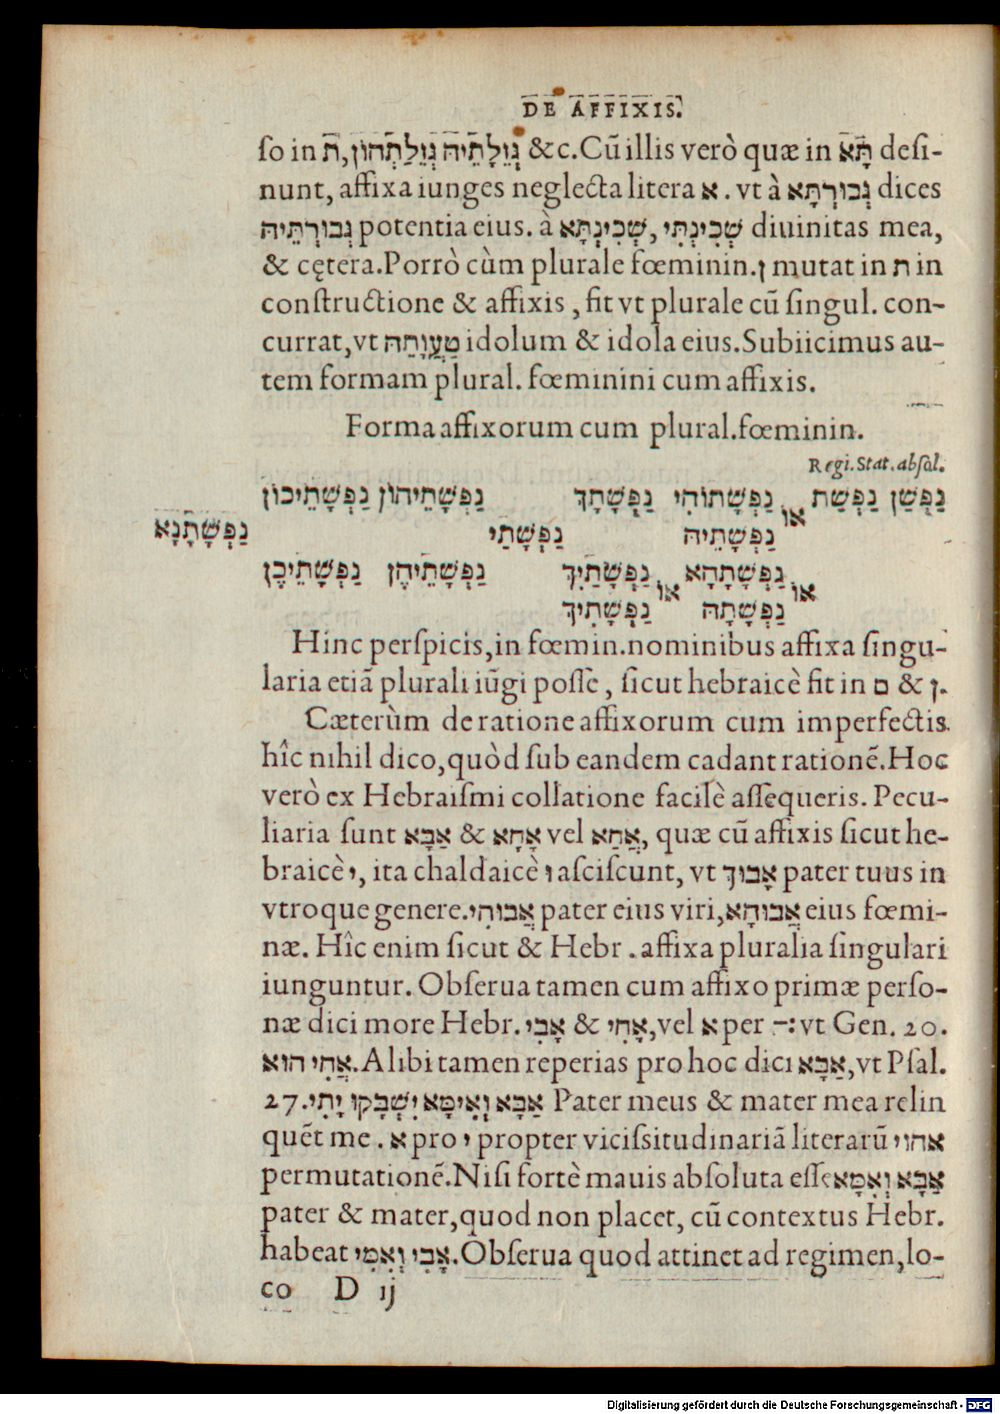 DE AFFIXIS.
ſo in גְּוֵלָתֵיהּ גְּוֵלַתְהוֹן,ת &c.Cū illis verò quæ in תָּא deſi-
nunt, affixa iunges neglecta litera א . vt à גְּבוּרְתָּא dices
גְּבוּרְתֵּיהּ potentia eius. à שְׁכִינְתִּי ,שְׁכִינְתָּא diuinitas mea,
& cętera.Porrò cùm plurale fœminin. ן mutat in ת in
conſtructione & affixis , fit vt plurale cū ſingul. con-
currat,vt טַעֲוָתַהּ idolum & idola eius.Subiicimus au-
tem formam plural. fœminini cum affixis.
Forma affixorum cum plural.fœminin.
Regi.Stat.abſol.
נַפְשָׁן נַפְשַׁת או נַפְשָׁתוֹהִי נַפְשָׁתָךְ נַפְשָׁתֵיהוֹן נַפְשָׁתֵיכוֹן
נַפְשָׁתֵיהּ נַפְשָׁתַי נַפְשָׁתָנָא
או נַפְשָׁתָהָא או נַפְשָׁתַיִךְ נַפְשָׁתֵיהֶן נַפְשָׁתֵיכֶן
נַפְשָׁתָהּ נַפְשָׁתִיךְ
Hinc perſpicis,in fœmin.nominibus affixa ſingu-
laria etiā plurali iūgi poſſe , ſicut hebraicè fit in ם & ן.
Cæterùm de ratione affixorum cum imperfectis.
hîc nihil dico,quòd ſub eandem cadant rationē.Hoc
verò ex Hebraiſmi collatione facilè aſſequeris. Pecu-
liaria ſunt אַבָּא & אָחָא vel אֲחַא, quæ cū affixis ſicut he-
braicè י, ita chaldaicè ו aſciſcunt, vt אָבוּךְ pater tuus in
vtroque genere.אֲבוּהִי pater eius viri,אֲבוּהָא eius fœmi-
næ. Hîc enim ſicut & Hebr . affixa pluralia ſingulari
iunguntur. Obſerua tamen cum affixo primæ perſo-
næ dici more Hebr. אָבִי & אָחִי,vel א per -: vt Gen. 20.
אֲחִי הוּא.Alibi tamen reperias pro hoc dici אַבָּא,vt Pſal.
27.אַבָּא וְאִימָּא יִשְׁבָּקוּ יָתִי Pater meus & mater mea relin
quēt me . א pro י propter viciſsitudinariā literarū אהוי
permutationē.Niſi fortè mauis abſoluta eſſe אַבָּא וְאִמָּא
pater & mater,quod non placet, cū contextus Hebr.
habeat אָבִי וְאִמִּי.Obſerua quod attinet ad regimen,lo-
co D ij
Digitalisierung gefördert durch die Deutsche Forschungsgemeinschaft - DFG